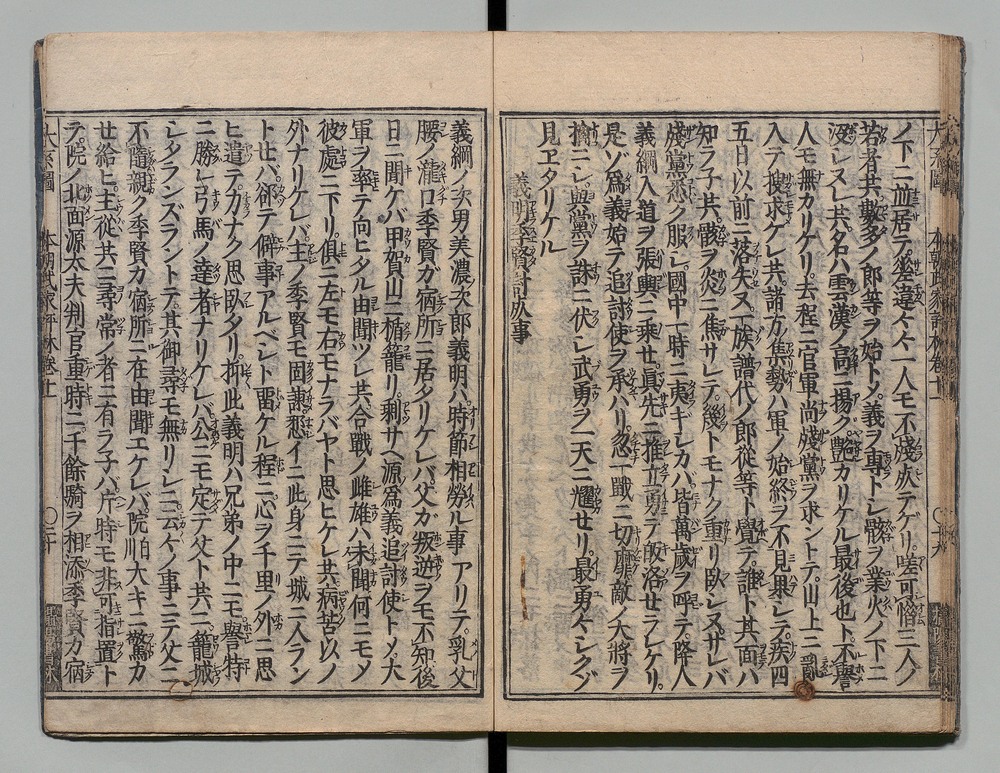 ノ下ニ並居テ差違々々一人モ不殘死テゲリ嗟可惜三人ノ
若者共數多ノ郎等ヲ始トメ義ヲ專トシ骸ヲ業火ノ下ニ
沒シヌレ共名ハ雲漢ノ高ニ揚ク艷カリケル最後也ト不譽
人モ無カリケリ去程ニ官軍尚殘黨ヲ求ントテ山上ニ亂
入テ搜求ケレ共諸方集勢ハ軍ノ始終ヲ不見果シテ疾四
五日以前ニ落失又一族譜代ノ郎從等ト覺テ誰ト其面ハ
知ラ子共骸ヲ炎ニ焦サレテ幾トモナク重リ臥シヌサレバ
殘黨悉ク服シ國中一時ニ夷ギシカバ皆萬歲ヲ呼テ降人
義綱入道ヲ張輿ニ乘セ眞先ニ推立勇テ皈洛セラレケリ
是ゾ爲義始テ追討使ヲ承ハリ忽一戰ニ切靡敵ノ大將ヲ
擒ニシ與黨ヲ誅ニ伏シ武勇ヲ一天ニ耀セリ最勇々シクゾ
見ヱタリケル
義明季賢討死事
義綱ノ次男美濃次郎義明ハ時節相勞ル事アリテ乳父
腰ノ瀧口季賢ガ宿所ニ居タリケレバ父カ叛逆ヲモ不知後
日ニ聞ケバ甲賀山ニ楯籠リ剩サヘ源爲義追討使トメ大
軍ヲ率テ向ヒタル由聞ツレ共合戰ノ雌雄ハ未聞何ニモメ
彼處ニ下リ俱ニ左モ右モナラバヤト思ヒケレ共病苦以ノ
外ナリケレバ主ノ季賢モ固諫忍イニ此身ニテ城ニ入ラン
ト廿バ卻テ僻事アルベシト留ケル程ニ心ヲ千里ノ外ニ思
ヒ遣テ力ナク思臥タリ抑此義明ハ兄弟ノ中ニモ譽特
ニ勝レ弓馬ノ達者ナリケレバ公ニモ定テ父ト共ニ籠城
シタランズラントテ其御尋モ無リシニ云々ノ事ニテ父ニ
不隨親ク季賢カ宿所ニ在由聞エケレバ院大キニ驚カ
廿給ヒ主從共ニ尋常ノ者ニ有ラ子ハ片時モ非可指置ト
テ院ノ北面源太夫判官重時ニ千餘騎ヲ相添季賢カ宿